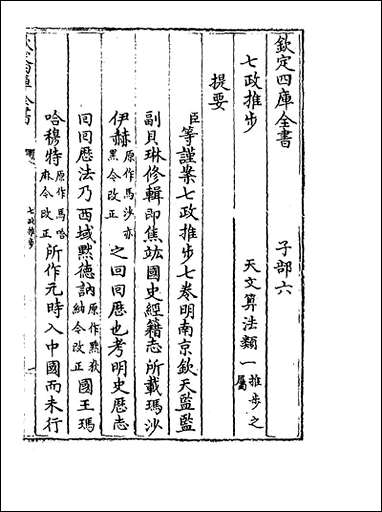 欽定四庫全書 子部六
七政推步 天文算法類一推步之屬
提要
臣等謹案七政推步七卷明南京欽天監監
副貝琳修輯即焦竑國史經籍志所載瑪沙
伊赫原作馬沙亦黑今改正之回回厯也考明史厯志
回回厯法乃西域黙德訥原作黙狄納今改正國王瑪
哈穆特原作馬哈麻今改正所作元時入中國而未行
七政推步